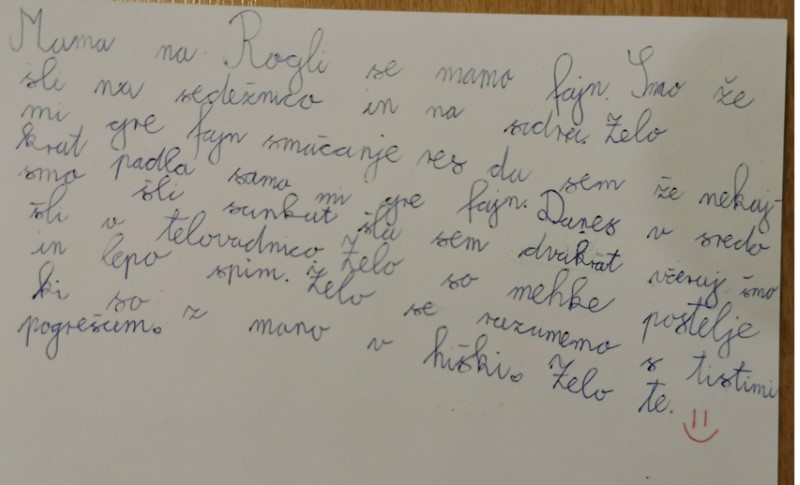 Mama na Rogli se mamo fajn. Smo že
šli na sedežnico in na sidra. Zelo
mi gre fajn smučanje res da sem že nekaj-
krat padla samo mi gre fajn. Danes v sredo
smo šli sankat šla sem dvakrat včeraj smo
šli v telovadnico. Zelo so mehke postelje
in lepo spim. Zelo se razumemo s tistimi
ki so z mano v hiški. Zelo te.
pogrešam.